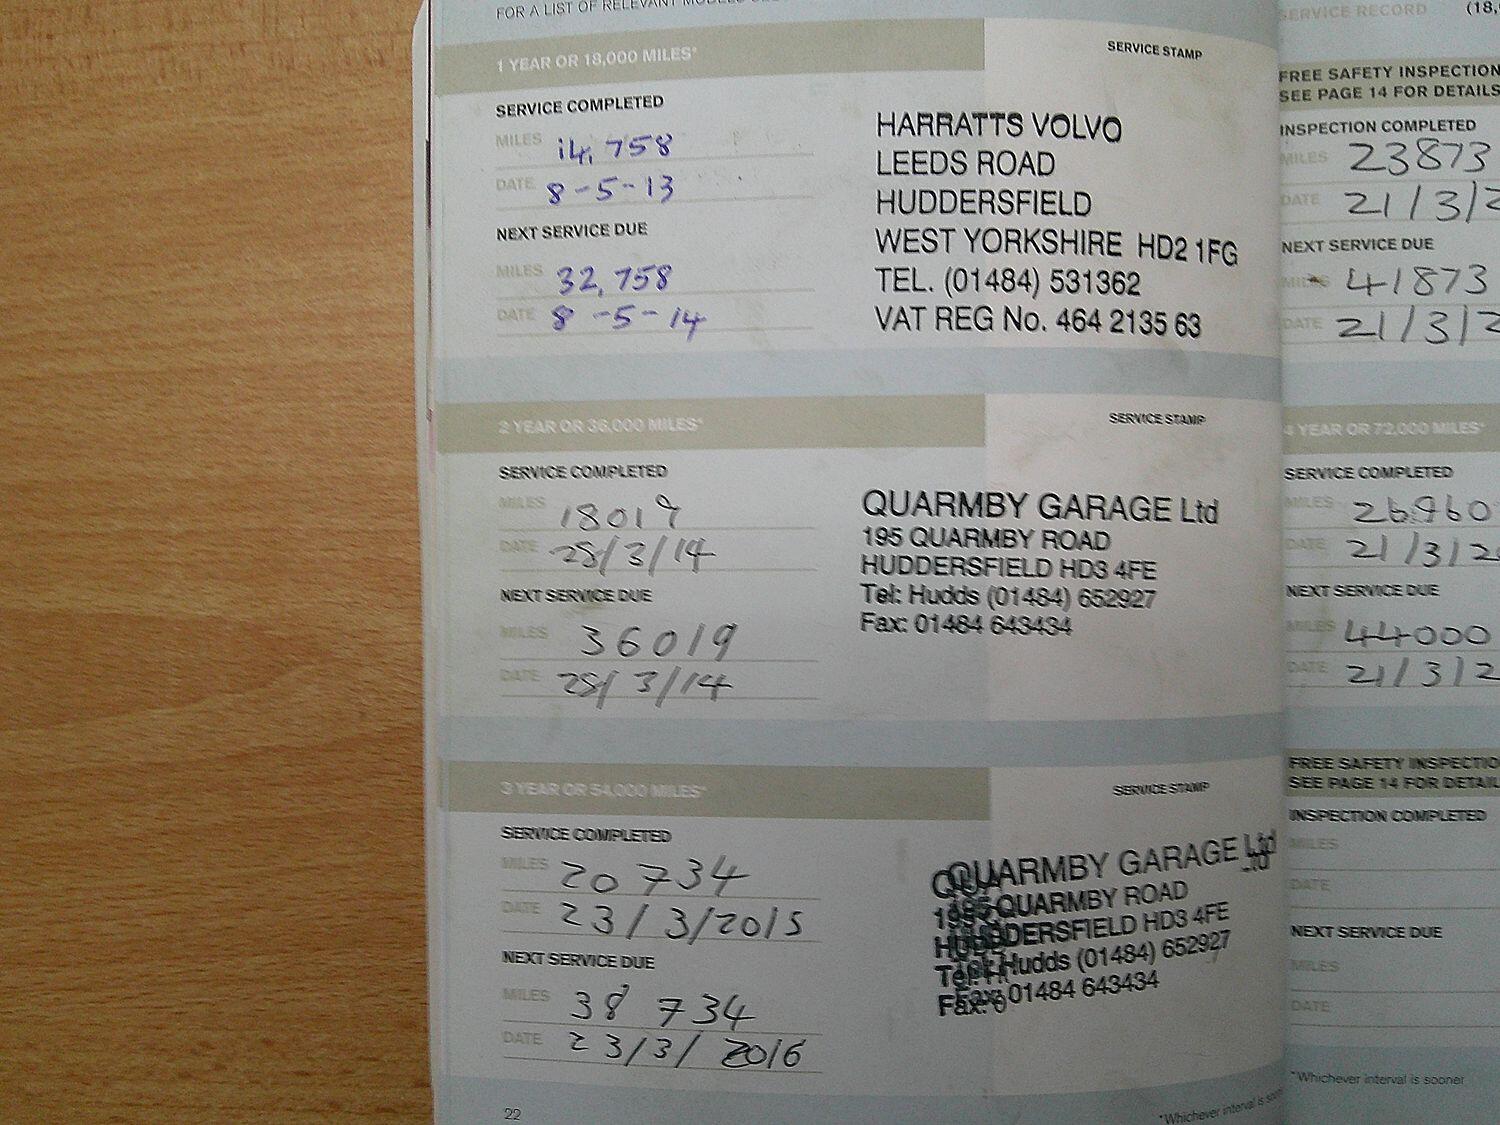 FOR A LIST OF RELEVANT
1 YEAR OR 18,000 MILES*
SERVICE STAMP
SERVICE COMPLETED
MILES 14,758
DATE 8-5-13
NEXT SERVICE DUE
MILES 32,758
DATE 8-5-14
HARRATTS VOLVO
LEEDS ROAD
HUDDERSFIELD
WEST YORKSHIRE HD2 1FG
TEL. (01484) 531362
VAT REG No. 464 2135 63
2 YEAR OR 36,000 MILES*
SERVICE STAMP
SERVICE COMPLETED
MILES 18019
DATE 28/3/14
NEXT SERVICE DUE
MILES 36019
DATE 28/3/14
QUARMBY GARAGE Ltd
195 QUARMBY ROAD
HUDDERSFIELD HD3 4FE
Tel: Hudds (01484) 652927
Fax: 01484 643434
3 YEAR OR 54,000 MILES*
SERVICE STAMP
SERVICE COMPLETED
MILES 20734
DATE 23/3/2015
NEXT SERVICE DUE
MILES 38734
DATE 23/3/2016
QUARMBY GARAGE Ltd
195 QUARMBY ROAD
HUDDERSFIELD HD3 4FE
Tel: Hudds (01484) 652927
Fax: 01484 643434
22
*Whichever interval is
SERVICE RECORD (18,
FREE SAFETY INSPECTION
SEE PAGE 14 FOR DETAILS
INSPECTION COMPLETED
MILES 23873
DATE 21/3/2
NEXT SERVICE DUE
MILES 41873
DATE 21/3/2
4 YEAR OR 72,000 MILES*
SERVICE COMPLETED
MILES 26960
DATE 21/3/20
NEXT SERVICE DUE
MILES 44000
DATE 21/3/2
FREE SAFETY INSPECTIO
SEE PAGE 14 FOR DETAIL
INSPECTION COMPLETED
MILES
DATE
NEXT SERVICE DUE
MILES
DATE
*Whichever interval is sooner